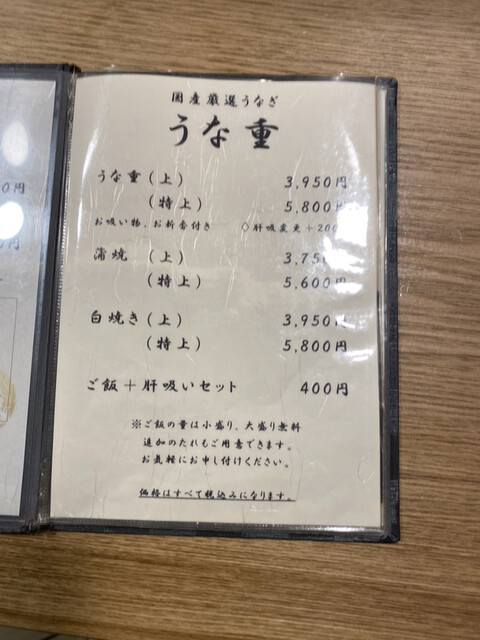 0円
円
国産厳選うなぎ
うな重
うな重(上) 3,950円
(特上) 5,800円
お吸い物、お新香付き ◇肝吸変更+200
蒲焼 (上) 3,750円
(特上) 5,600円
白焼き(上) 3,950円
(特上) 5,800円
ご飯+肝吸いセット 400円
※ご飯の量は小盛り、大盛り無料
追加のたれもご用意できます。
お気軽にお申し付けください。
価格はすべて税込みになります。